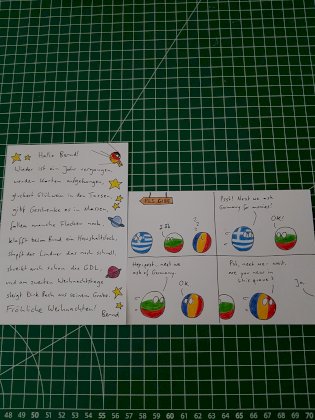 Hallo Bernd!
Wieder ist ein Jahr vergangen,
werden Karten aufgehangen,
gluckert Glühwein in den Tassen,
gibt's Geschenke in Massen,
fallen manche Flocken noch.
Klafft beim Bund ein Haushaltsloch,
Shoppt der Landser das noch schnell,
streikt mich schon die GDL
und am zweiten Weihnachtstage
steigt Dirk Bach aus seinem Grabe.
Fröhliche Weihnachten!
Bernd
PLS GIBE
Psst! Next we ask
Germany for monies!
OK!
Hey psst, next we
ask Germany.
OK.
Psh, next we wait,
are you new in
this queue?
Ja.
48 49 50 51 52 53 54 55 56 57 58 59 60 61 62 63 64 65 66 67 68 69 70